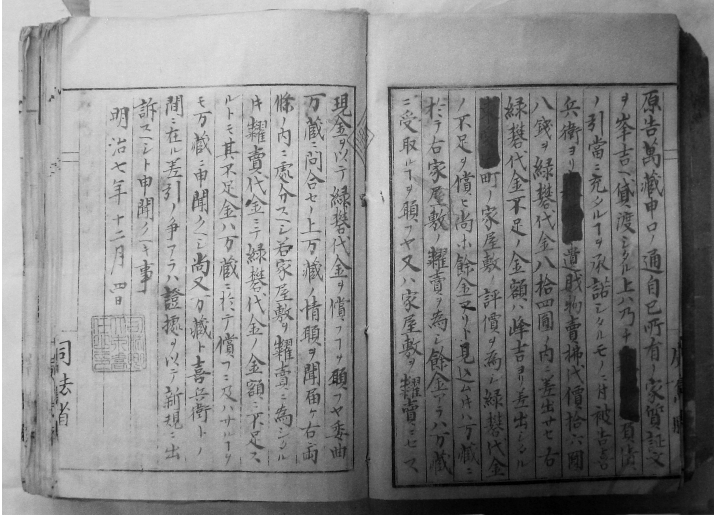 原告萬藏申口ノ通自己所有ノ家質証文
ヲ峯吉ヘ貸渡シタル上ハ乃チ
ノ引當ニ充シルヿヲ承諾シタルモノニ付被告喜
兵衛ヨリ 貴賎物賣拂代價拾六圓
八錢ヲ緑礬代金八拾四圓ノ内ニ差出サセ右
緑礬代金不足ノ金額ハ峰吉ヨリ差出シシル
町 家屋敷評價ヲ為シ緑礬代金
ノ不足ヲ償ヒ尚ホ餘金アリト見込ムトキハ万藏ニ
於テ右家屋敷ノ糶賣ヲ為シ餘金アラハ万藏
ニ受取ルヿヲ願フヤ又ハ家屋敷ヲ糶賣ニセス
現金ヲ以テ緑礬代金ヲ償フヿヲ願フヤ委曲
万藏ニ問合セノ上万藏ノ情願ヲ聞届ケ右両
條ノ内ニ處分スヘシ右家屋敷ヲ糶賣ニ為シタル
片糶賣代金ニテ緑礬代金ノ金額ニ不足ス
ルトモ其不足金ハ万藏ニ於テ償フニ及ハサル
モ万藏ニ申聞ク可シ尚又万藏ト喜兵衛トノ
間ニ在ル差引ノ争アラハ證據ヲ以テ新規ニ出
訴スヘシト申聞ク可キ事
明治七年十二月四日
司法省